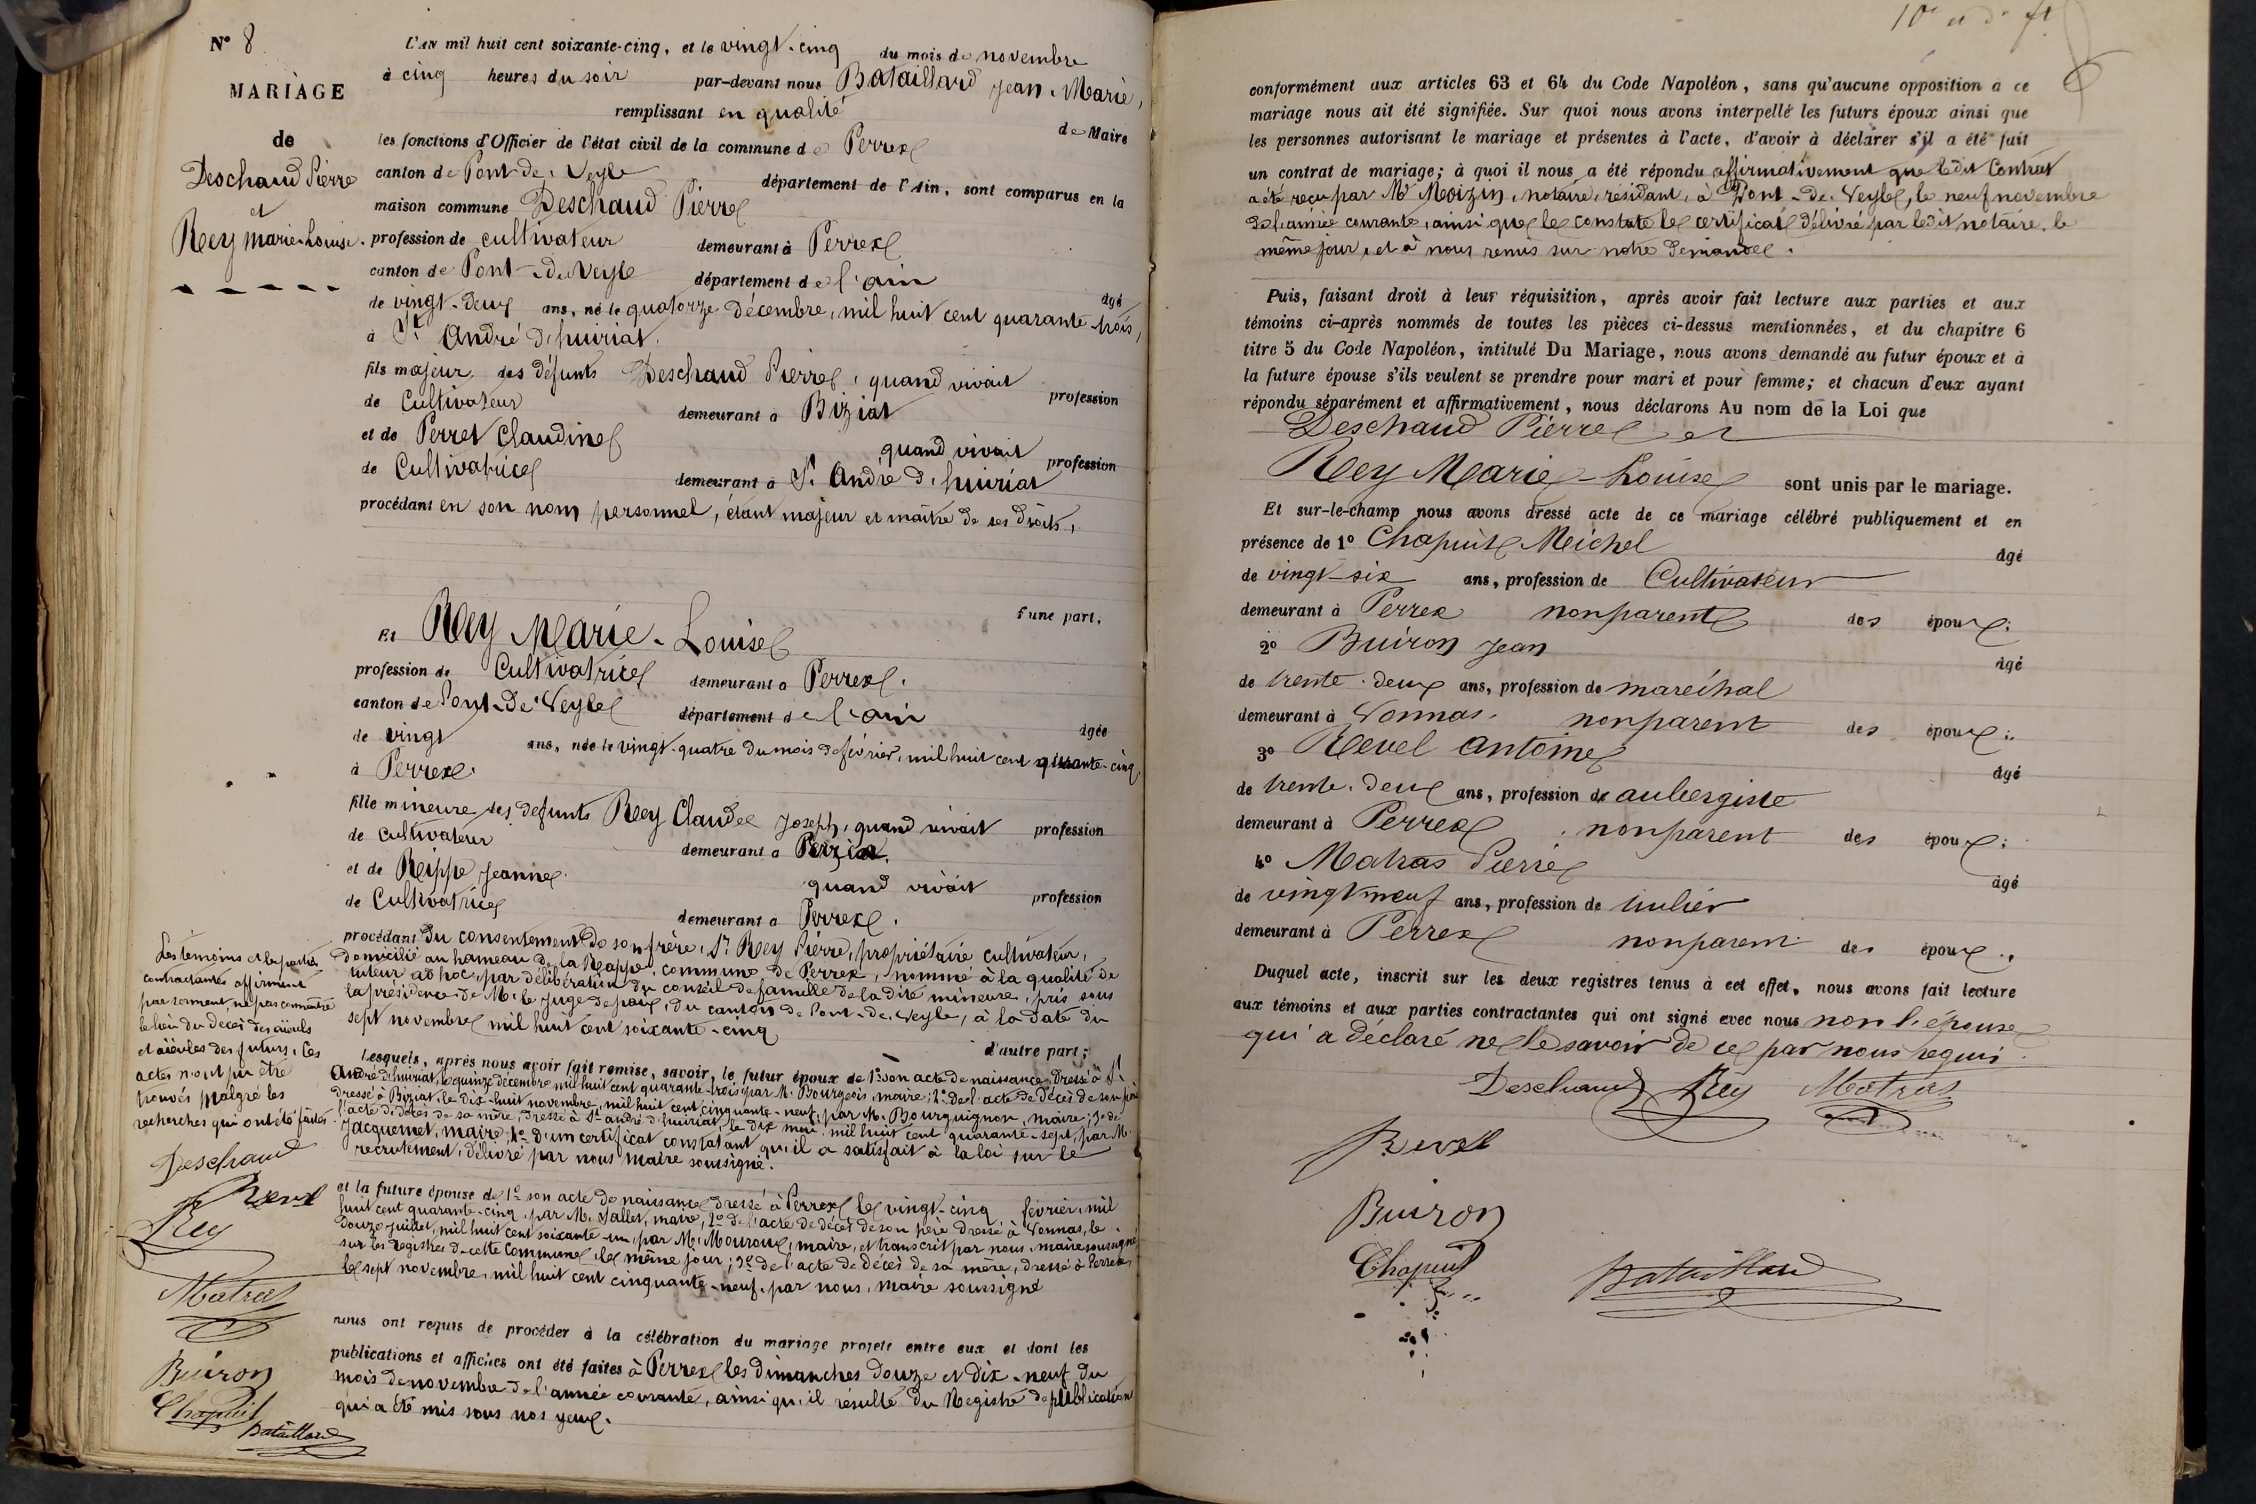 N° 8
MARIAGE
de
Deschaud Pierre
et
Rey Marie-Louise.
L'AN mil huit cent soixante-cinq, et le vingt-cinq du mois de novembre
à cinq heures du soir par-devant nous Bataillard Jean-Marie,
remplissant en qualité de Maire
les fonctions d'Officier de l'état civil de la commune de Perrex
canton de Pont-de-Veyle département de l'Ain, sont comparus en la
maison commune Deschaud Pierre
profession de cultivateur demeurant à Perrex
canton de Pont-de-Veyle département de l'ain
âgé
de vingt-deux ans, né le quatorze décembre, mil huit cent quarante-trois,
à St André d'huiriat.
fils majeur des défunts Deschaud Pierre, quand vivait profession
de Cultivateur demeurant à Biziat
et de Perret Claudine quand vivait profession
de Cultivatrice demeurant à St André d'huiriat
procédant en son nom personnel, étant majeur et maître de ses droits,
d'une part.
Et Rey Marie-Louise
profession de Cultivatrice demeurant à Perrex.
canton de Pont-de-Veyle département de l'ain
âgée
de vingt ans, née le vingt-quatre du mois de février, mil huit cent quarante-cinq,
à Perrex.
fille mineure des défunts Rey Claude Joseph, quand vivait profession
de cultivateur demeurant à
et de Reippe Jeanne quand vivait profession
de Cultivatrice demeurant à Perrex.
procédant du consentement de son frère, Sr Rey Pierre, propriétaire cultivateur,
domicilié au hameau de la Rappe, commune de Perrex, nommé à la qualité de
tuteur ad hoc, par délibération du conseil de famille de la dite mineure, pris sous
la présidence de Mr le juge de paix, du canton de Pont-de-Veyle, à la date du
sept novembre mil huit cent soixante-cinq
d'autre part;
Lesquels, après nous avoir fait remise, savoir, le futur époux de 1° son acte de naissance dressé à St
André d'huiriat, le quinze décembre mil huit cent quarante-trois par M. Bourgeois, maire; 2° De l'acte de décès de son père
dressé à Biziat, le dix-huit novembre, mil huit cent cinquante-neuf, par M. Bourguignon, maire; 3° de
l'acte de décès de sa mère, dressé à St andré d'huiriat, le dix mai, mil huit cent quarante-sept, par M.
Jacquemet, maire; 4° d'un certificat constatant qu'il a satisfait à la loi sur le
recrutement, délivré par nous maire soussigné.
et la future épouse de 1° son acte de naissance dressé à Perrex le vingt-cinq février, mil
huit cent quarante-cinq, par M. Vallet, maire, 2° de l'acte de décès de son père dressé à Vonnas, le
douze juillet, mil huit cent soixante-un, par M. Mouroux, maire, et transcrit par nous, maire soussigné
sur les registres de cette commune le même jour; 3° de l'acte de décès de sa mère, dressé à Perrex,
le sept novembre, mil huit cent cinquante-neuf, par nous, maire soussigné
nous ont requis de procéder à la célébration du mariage projeté entre eux et dont les
publications et affiches ont été faites à Perrex les dimanches douze et dix-neuf du
mois de novembre de l'année courante, ainsi qu'il résulte du Registre de publication
qui a été mis sous nos yeux.
Les témoins et les parties
contractantes affirment
par serment ne pas connaître
le lieu du décès des aïeuls
et aïeules des futurs. Ces
actes n'ont pu être
trouvés malgré les
recherches qui ont été faites.
Deschaud
Revel
Rey
Matras
Buiron
Chapuis
Bataillard
conformément aux articles 63 et 64 du Code Napoléon, sans qu'aucune opposition à ce
mariage nous ait été signifiée. Sur quoi nous avons interpellé les futurs époux ainsi que
les personnes autorisant le mariage et présentes à l'acte, d'avoir à déclarer s'il a été fait
un contrat de mariage; à quoi il nous a été répondu affirmativement que ledit Contrat
a été reçu par Me Moizin, notaire, résidant, à Pont-de-Veyle, le neuf novembre
de l'année courante, ainsi que le constate le certificat délivré par ledit notaire, le
même jour, et à nous remis sur notre demande.
Puis, faisant droit à leur réquisition, après avoir fait lecture aux parties et aux
témoins ci-après nommés de toutes les pièces ci-dessus mentionnées, et du chapitre 6
titre 5 du Code Napoléon, intitulé Du Mariage, nous avons demandé au futur époux et à
la future épouse s'ils veulent se prendre pour mari et pour femme; et chacun d'eux ayant
répondu séparément et affirmativement, nous déclarons Au nom de la Loi que
Deschaud Pierre et
Rey Marie-Louise sont unis par le mariage.
Et sur-le-champ nous avons dressé acte de ce mariage célébré publiquement et en
présence de 1° Chapuis Meichel âgé
de vingt-six ans, profession de Cultivateur
demeurant à Perrex non parent des époux;
2° Buiron Jean âgé
de trente-deux ans, profession de maréchal
demeurant à Vonnas. non parent des époux;
3° Revel antoine âgé
de trente-deux ans, profession de aubergiste
demeurant à Perrex, non parent des époux;
4° Matras Pierre âgé
de vingt neuf ans, profession de tuilier
demeurant à Perrex non parent des époux.
Duquel acte, inscrit sur les deux registres tenus à cet effet, nous avons fait lecture
aux témoins et aux parties contractantes qui ont signé avec nous non l'épouse
qui a déclaré ne le savoir de ce par nous requis.
Deschaud Rey Matras
Revel
Buiron
Chapuis Bataillard